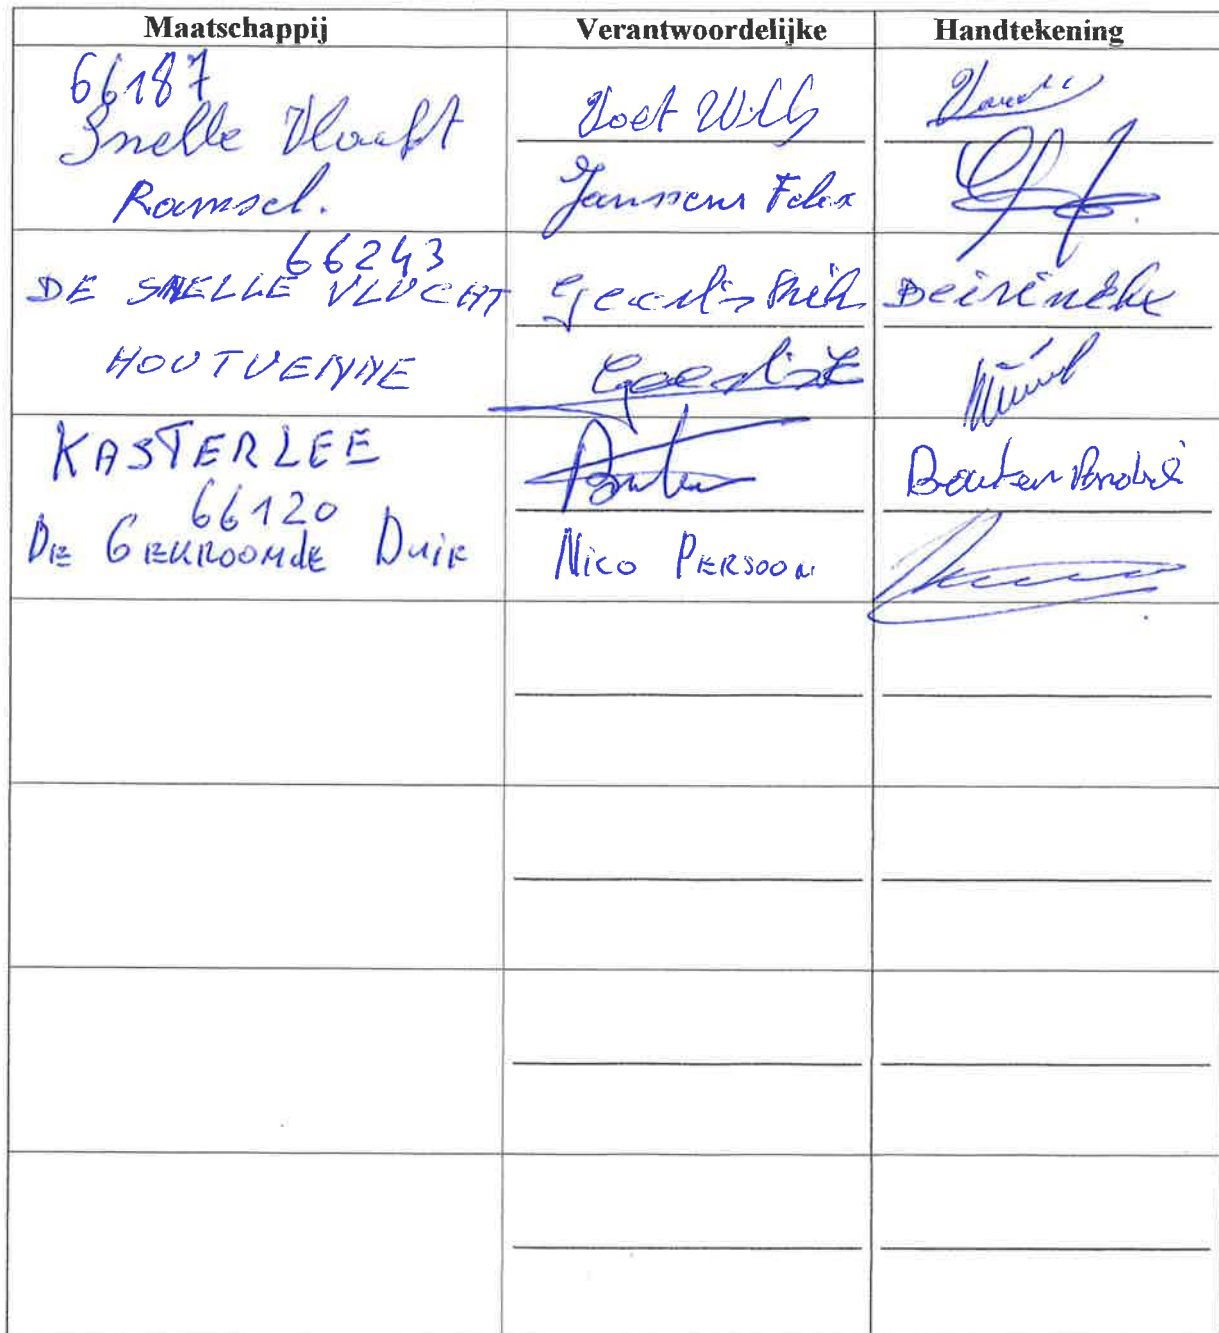 Maatschappij Verantwoordelijke Handtekening
66187
Snelle Vlucht
Ramsel.
Voet Willy
Janssens Felix
66243
DE SNELLE VLUCHT
HOUTVENNE
Geerts
Deirinckx
KASTERLEE
66120
DE GEKROONDE DUIF
Bouten André
NICO PERSOON